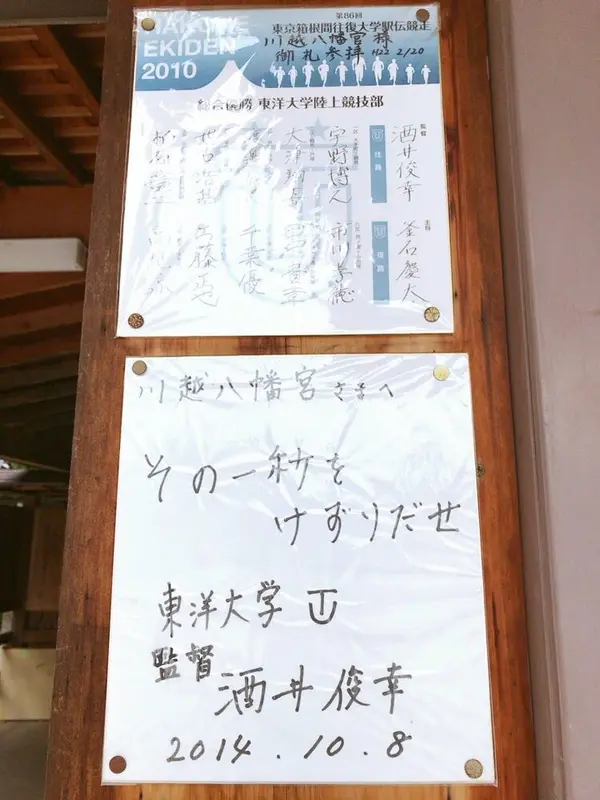 HAKONE
EKIDEN
2010
第86回
東京箱根間往復大学駅伝競走
川越八幡宮様
御礼参拝 H22 2/20
総合優勝 東洋大学陸上競技部
監督
酒井俊幸
主将
釜石慶太
往路
復路
宇野博人
市川孝徳
大津翔吾
田中貴章
千葉優
川越八幡宮さまへ
その一秒を
けずりだせ
東洋大学
監督 酒井俊幸
2014.10.8